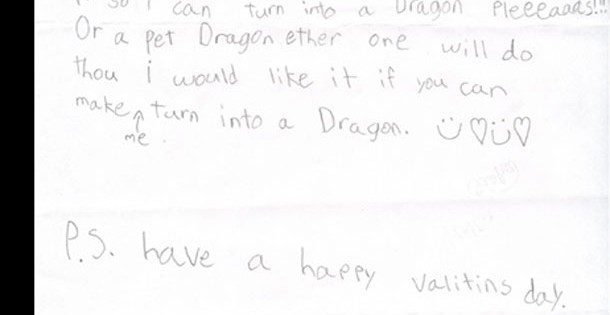 so I can turn into a Dragon Pleeeaaas!!!
Or a pet Dragon ether one will do
thou i would like it if you can
make me turn into a Dragon. ü♡ü♡
P.S. have a happy valitins day.